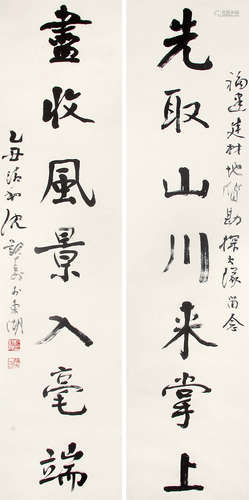 福建建材地质勘探大队留念
先取山川来掌上
盡收風景入毫端
乙丑清和沈觐寿於東湖